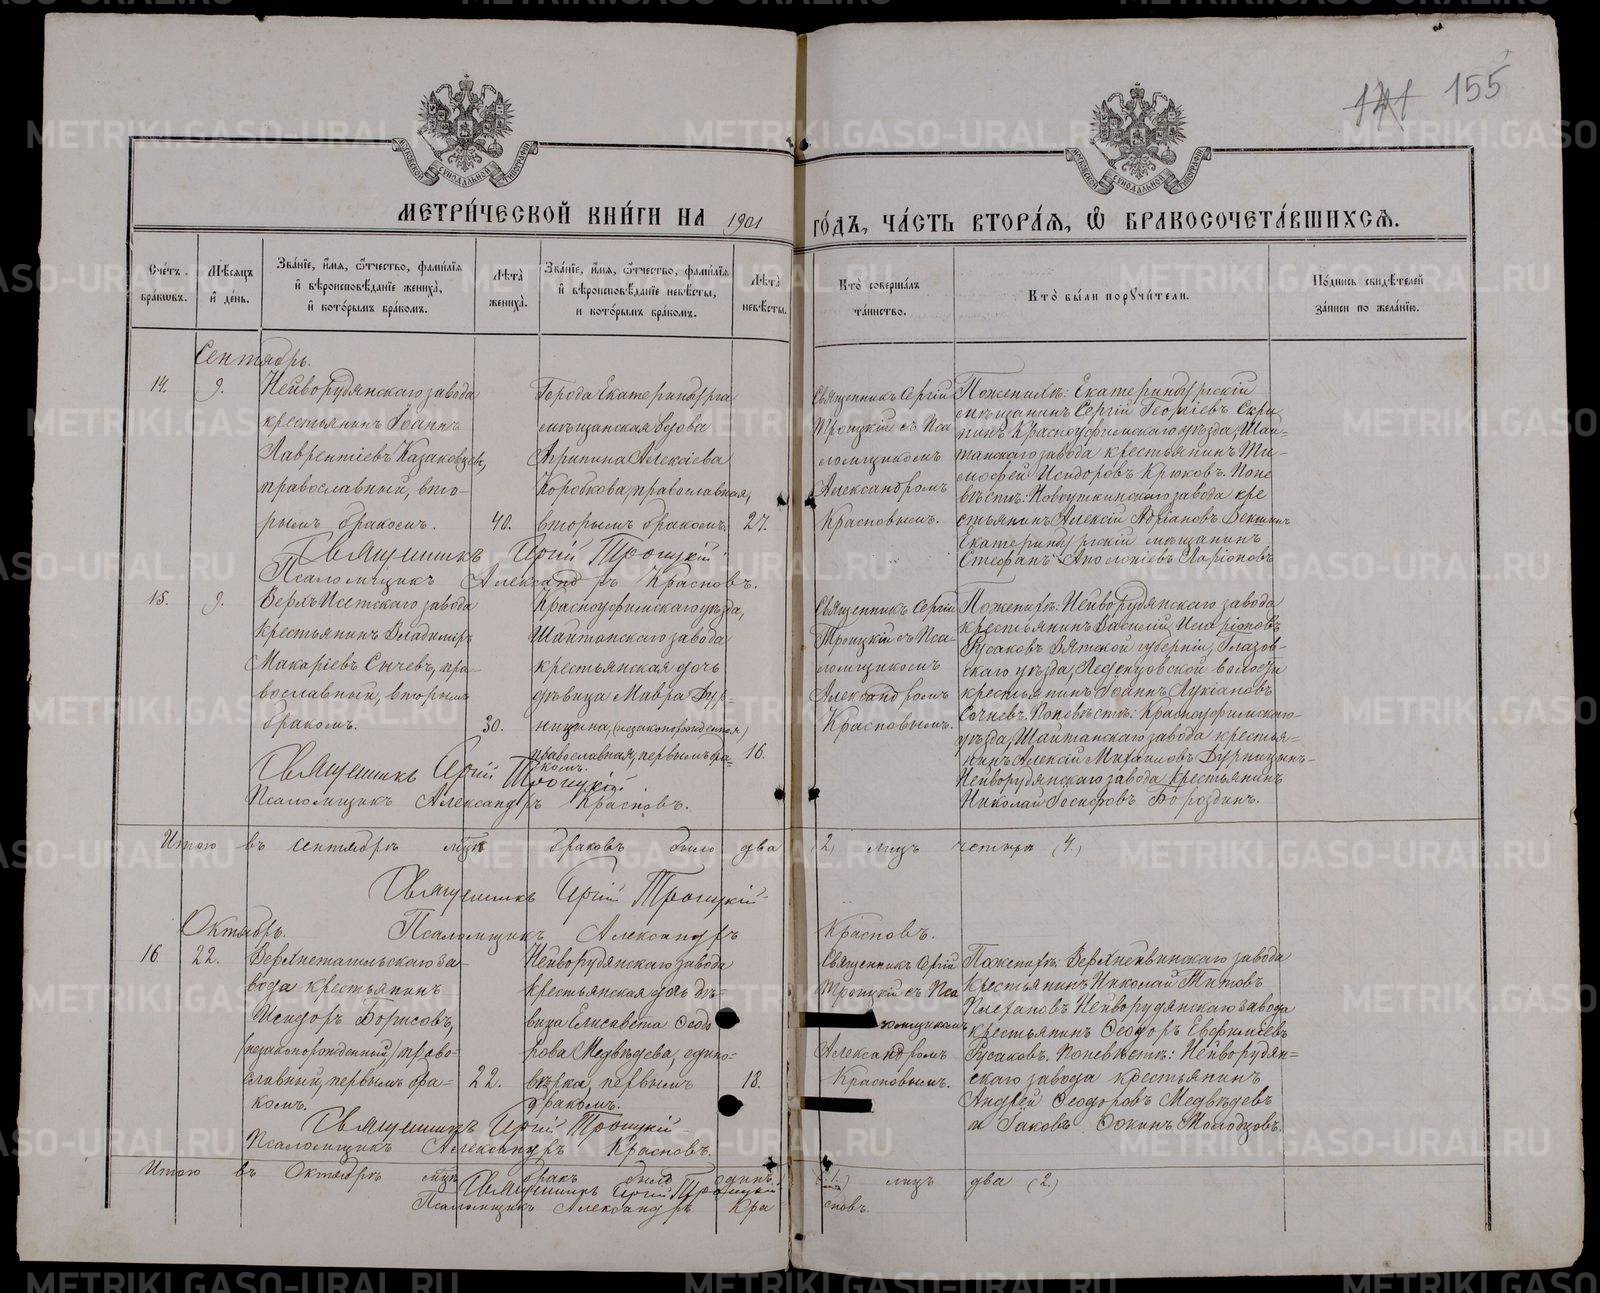 171 155
МОСКОВСКОЙ СѴНОДАЛЬНОЙ ТИПОГРАФІИ
МОСКОВСКОЙ СѴНОДАЛЬНОЙ ТИПОГРАФІИ
МЕТРИ́ЧЕСКОЙ КНИ́ГИ НА 1901 ГО́ДЪ, ЧА́СТЬ ВТОРА́Ѧ, Ѽ БРАКОСОЧЕТА́ВШИХСѦ.
Сче́тъ бра́кѡвъ.
Мѣ́сѧцъ и҆ де́нь.
Зва́нїе, и҆́мѧ, ѻ҆́тчество, фами́лїѧ
и҆ вѣроисповѣ́данїе жениха̀,
и҆ кото́рымъ бра́комъ.
Лѣ́та жениха̀.
Зва́нїе, и҆́мѧ, ѻ҆́тчество, фами́лїѧ
и҆ вѣроисповѣ́данїе невѣ́сты,
и кото́рымъ бра́комъ.
Лѣ́та невѣ́сты.
Кто̀ соверша́лъ та́инство.
Кто̀ бы́ли порꙋчи́тели.
По́дпись свидѣ́телей
за́писи по жела́нїю.
Сентябрь.
14.
9.
Нейворудянскаго завода
крестьянинъ Іоаннъ
Лаврентіевъ Казаковцевъ,
православный, вто-
рымъ бракомъ.
40.
Города Екатеринбурга
мѣщанская вдова
Агрипина Алексіева
Коробкова, православная,
вторымъ бракомъ.
27.
Священникъ Сергій
Троицкій съ Пса
ломщикомъ
Александромъ
Красновымъ.
По женихѣ: Екатеринбургскій
мѣщанинъ Сергій Георгіевъ Скри
пинъ Красноуфимскаго уѣзда, Шай-
танскаго завода крестьянинъ Ти-
мофей Исидоровъ Крюковъ. По не
вѣстѣ: Новоуткинскаго завода кре
стьянинъ Алексій Адріановъ Векшинъ
Екатеринбургскій мѣщанинъ
Стефанъ Аполоніевъ Ларіоновъ
Священникъ Сергій Троицкій
Псаломщикъ Александръ Красновъ.
15.
9.
Верхъ Исетскаго завода
крестьянинъ Владимиръ
Макаріевъ Сычевъ, пра-
вославный, вторымъ
бракомъ.
30.
Красноуфимскаго уѣзда,
Шайтанскаго завода
крестьянская дочь
дѣвица Мавра Дур-
ницина, (незаконорожденная)
православная, первымъ бра-
комъ.
16.
Священникъ Сергій
Троицкій съ Пса-
ломщикомъ
Александромъ
Красновымъ.
По женихѣ: Нейворудянскаго завода
крестьянинъ Василій Иларіоновъ
Русаковъ Вятской губерніи, Глазов-
скаго уѣзда, Леденцовской волости
крестьянинъ Іоаннъ Лукіановъ
Сочневъ. По невѣстѣ: Красноуфимскаго
уѣзда, Шайтанскаго завода крестья-
нинъ Алексій Михаиловъ Дурницынъ
Нейворудянскаго завода крестьянинъ
Николай Іосифовъ Бороздинъ.
Священникъ Сергій Троицкій.
Псаломщикъ Александръ Красновъ.
Итого въ сентябрѣ мцѣ браковъ было два (2) лицъ четыре (4.)
Священникъ Сергій Троицкій
Псаломщикъ Александръ Красновъ.
Октябрь.
16
22.
Верхнетагильскаго за-
вода крестьянинъ
Исидоръ Борисовъ,
(незаконорожденный,) право-
славный, первымъ бра-
комъ.
22.
Нейворудянскаго завода
крестьянская дочь дѣ-
вица Елисавета Ѳеодо
рова Медвѣдева, едино-
вѣрка, первымъ
бракомъ.
18.
Священникъ Сергій
Троицкій съ Пса
ломщикомъ
Александромъ
Красновымъ.
По женихѣ: Верхнейвинскаго завода
крестьянинъ Николай Титовъ
Плехановъ Нейворудянскаго завода
крестьянинъ Ѳеодоръ Евфиміевъ
Русаковъ. По невѣстѣ: Нейворудян-
скаго завода крестьянинъ
Андрей Ѳеодоровъ Медвѣдевъ
и Іаковъ Ѳокинъ Молодцовъ.
Священникъ Сергій Троицкій
Псаломщикъ Александръ Красновъ.
Итого въ Октябрѣ мцѣ бракъ былъ одинъ (1.) лицъ два (2.)
Священникъ Сергій Троицкій
Псаломщикъ Александръ Красновъ.
METRIKI.GASO-URAL.RU